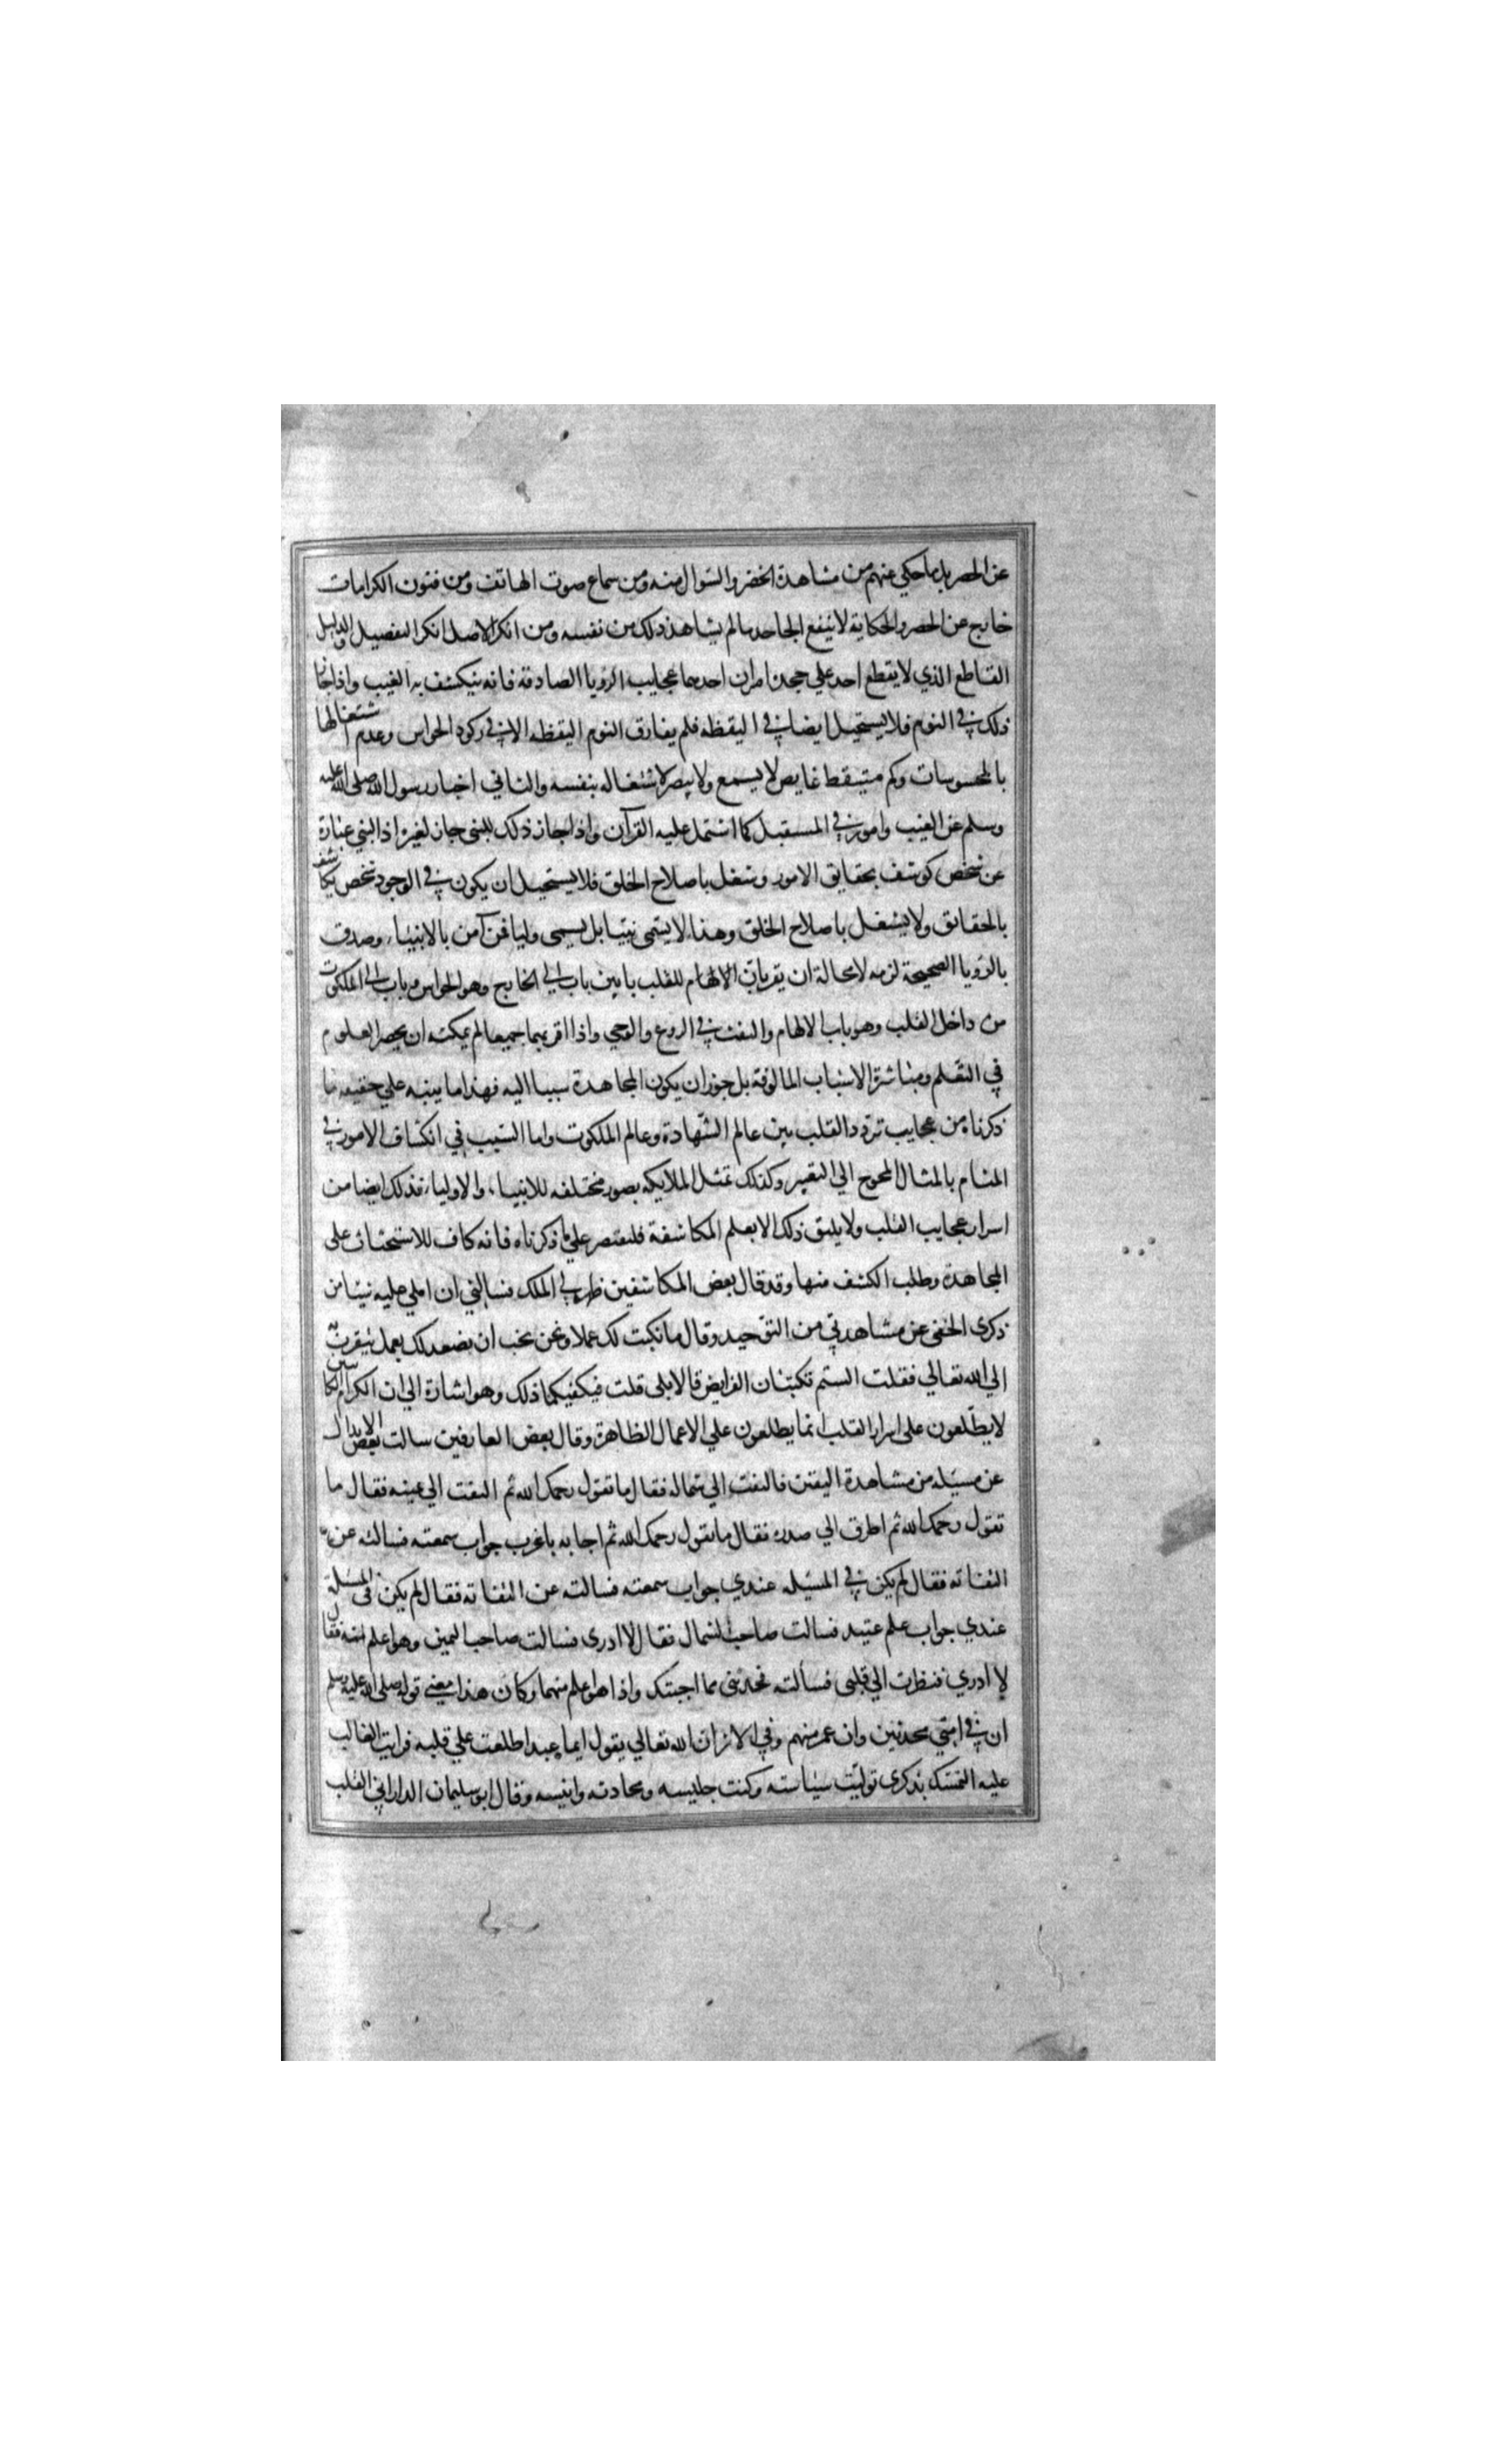 عن الحصر بل ما حكي عنهم من مشاهدة الخضر والسوال منه ومن سماع صوت الهاتف ومن فنون الكرامات
خارج عن الحصر والحكاية لا ينفع الجاحد ما لم يشاهد ذلك من نفسه ومن انكر الاصل انكر التفصيل والدليل
القاطع الذي لا يقطع احد علي جحده امران احدهما عجايب الرؤيا الصادقة فانه ينكشف به الغيب واذا جاز
ذلك في النوم فلا يستحيل ايضا في اليقظه فلم يفارق النوم اليقظه الا في ركود الحواس وعدم اشتغالها
بالمحسوسات وكم متيقط غايص لا يسمع ولا يبصر لاشتغاله بنفسه والثاني اخبار رسول الله صلى الله عليه
وسلم عن الغيب وامور في المستقبل كما اشتمل عليه القرآن واذا جاز ذلك للنبي جاز لغيره اذ النبي عبارة
عن شخص كوشف بحقايق الامور وشغل باصلاح الخلق فلا يستحيل ان يكون في الوجود شخص يكاشف
بالحقائق ولا يشغل باصلاح الخلق وهذا لا يسمى نبيا بل يسمى وليا فمن آمن بالانبياء وصدق
بالرؤيا الصحيحة لزمه لا محالة ان يقر بان الالهام للقلب بابين باب الي الخارج وهو الحواس وباب الى الملكوت
من داخل القلب وهو باب الالهام والنفث في الروع والوحي واذا اقر بهما جميعا لم يمكنه ان يحصر العلوم
في التعلم ومباشرة الاسباب المالوفة بل جوز ان يكون المجاهدة سببا اليه فهذا ما ينبه علي حقيقه ما
ذكرناه من عجايب تردد القلب بين عالم الشهادة وعالم الملكوت واما السبب في انكشاف الامور في
المنام بالمثال المحوج الي التعبير وكذلك تمثل الملايكه بصور مختلفه للانبياء والاولياء فذلك ايضا من
اسرار عجايب القلب ولا يليق ذلك الا بعلم المكاشفة فلنقتصر علي ما ذكرناه فانه كاف للاستحثاث على
المجاهدة وطلب الكشف منها وقد قال بعض المكاشفين ظهر لي الملك فسالني ان املي عليه شيئا من
ذكرى الخفي عن مشاهدتي من التوحيد وقال ما نكتب لك عملا ونحن نحب ان نصعد لك بعمل نتقرب به
الي الله تعالي فقلت الستم تكتبان الفرايض قالا بلى قلت فيكفيكما ذلك وهو اشارة الي ان الكرام الكاتبين
لا يطلعون على اسرار القلب انما يطلعون علي الاعمال الظاهرة وقال بعض العارفين سالت بعض الابدال
عن مسئله من مشاهدة اليقين فالتفت الي شماله فقال ما تقول رحمك الله ثم التفت الي يمينه فقال ما
تقول رحمك الله ثم اطرق الي صدره فقال ما تقول رحمك الله ثم اجابه باغرب جواب سمعته فسالته عن
التفاته فقال لم يكن في المسئله عندي جواب سمعته فسالته عن التفاته فقال لم يكن في المسئلة
عندي جواب علم عتيد فسالت صاحب الشمال فقال لا ادرى فسالت صاحب اليمين وهو اعلم منه فقال
لا ادري فنظرت الي قلبى فسألته فحدثنى بما اجبتك واذا هو اعلم منهما وكان هذا معنى قوله صلى الله عليه وسلم
ان في امتي محدثين وان عمر منهم وفي الاثر ان الله تعالي يقول ايما عبد اطلعت علي قلبه فرايت الغالب
عليه التمسك بذكرى توليت سياسته وكنت جليسه ومحادثه وانيسه وقال ابو سليمان الداراني القلب